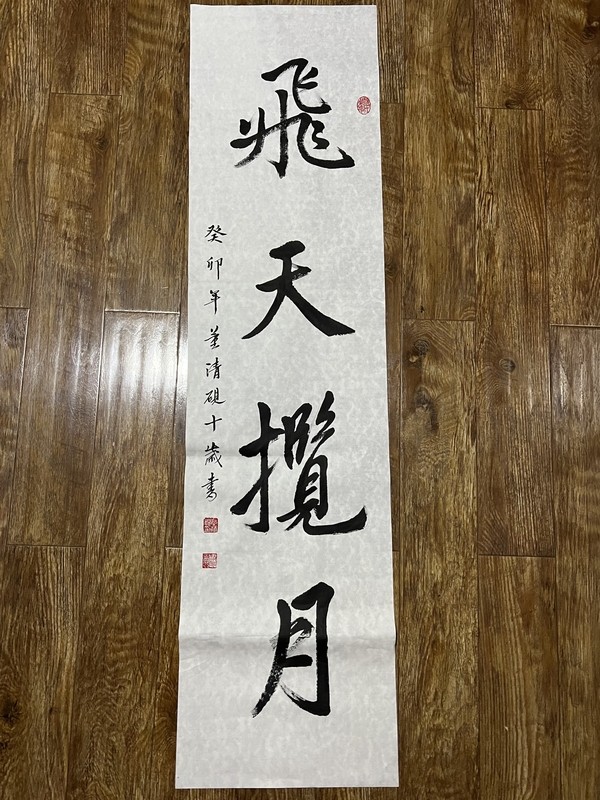 飛天攬月
癸卯年董清硯十歲書